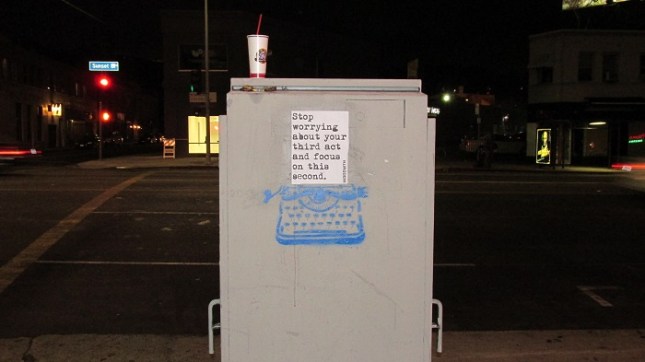 Sunset Bl
Stop
worrying
about your
third act
and focus
on this
second.